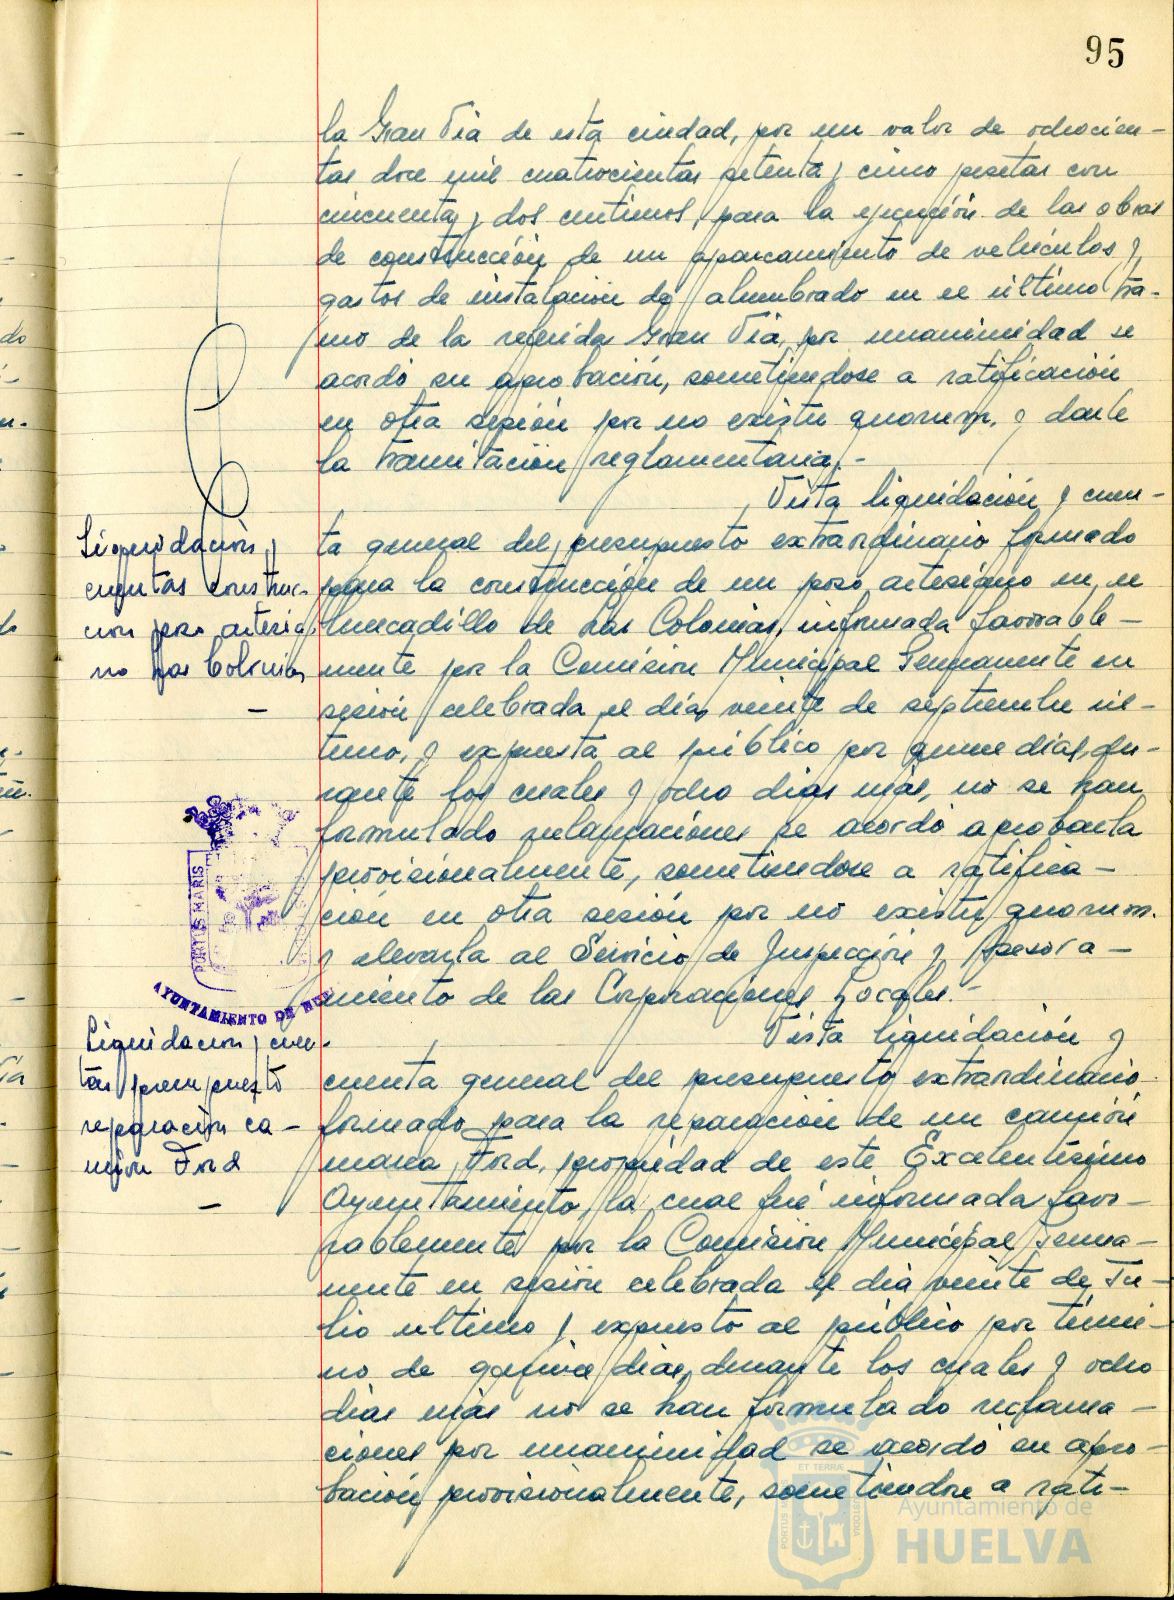 95
la Gran Via de esta ciudad, por un valor de ochocien-
tas doce mil cuatrocientas setenta y cinco pesetas con
cincuenta y dos centimos, para la ejecución de las obras
de construcción de un aparcamiento de vehículos y
gastos de instalación de alumbrado en el último tra-
mo de la referida Gran Via, por unanimidad se
acordó su aprobación, sometiendose a ratificación
en otra sesión por no existir quorum, y darle
la tramitación reglamentaria.-
Vista liquidación y cuen-
Liquidación y
cuentas construc-
cion pozo artesia-
no Las Colonias
-
ta general del presupuesto extraordinario formado
para la construcción de un pozo artesiano en el
mercadillo de Las Colonias, informada favorable-
mente por la Comisión Municipal Permanente en
sesión celebrada el día veinte de septiembre úl-
timo, y expuesta al público por quince dias, du-
rante los cuales y ocho dias más, no se han
formulado reclamaciones se acordó aprobarla
provisionalmente, sometiendose a ratifica-
ción en otra sesión por no existir quorum.
y elevarla al Servicio de Inspección y Asesora-
miento de las Corporaciones Locales.-
PORTUS MARIS
AYUNTAMIENTO DE HUEL
Vista liquidación y
Liquidacion y cuen-
tas presupuesto
reparación ca-
mion Ford
-
cuenta general del presupuesto extraordinario
formado para la reparación de un camión
marca Ford, propiedad de este Excelentísimo
Ayuntamiento, la cual fué informada favo-
rablemente por la Comisión Municipal Perma-
nente en sesión celebrada el dia veinte de Ju-
lio ultimo y expuesto al público por térmi-
no de quince dias, durante los cuales y ocho
dias más no se han formulado reclama-
ciones por unanimidad se acordó su apro-
bación provisionalmente, sometiendose a rati-
ET TERRÆ
PORTUS MARIS
CUSTODIA
Ayuntamiento de
HUELVA